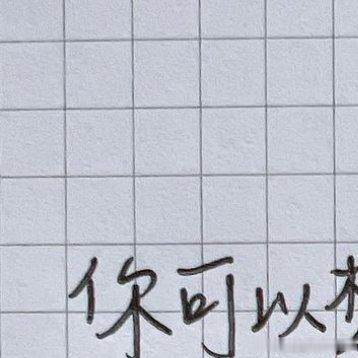 你可以